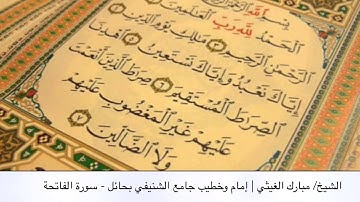 بِسْمِ ٱللَّهِ ٱلرَّحْمَٰنِ
ٱلْحَمْدُ لِلَّهِ رَبِّ ٱلْعَٰلَمِينَ
ٱلرَّحْمَٰنِ ٱلرَّحِيمِ ٣ مَٰلِكِ يَوْمِ ٱلدِّينِ
إِيَّاكَ نَعْبُدُ وَإِيَّاكَ نَسْتَعِينُ ٥ ٱهْدِنَا
ٱلصِّرَٰطَ ٱلْمُسْتَقِيمَ ٦ صِرَٰطَ ٱلَّذِينَ أَنْعَمْتَ
عَلَيْهِمْ غَيْرِ ٱلْمَغْضُوبِ عَلَيْهِمْ
وَلَا ٱلضَّآلِّينَ ٧
الشيخ/ مبارك الغيثي | إمام وخطيب جامع الشنيفي بحائل - سورة الفاتحة